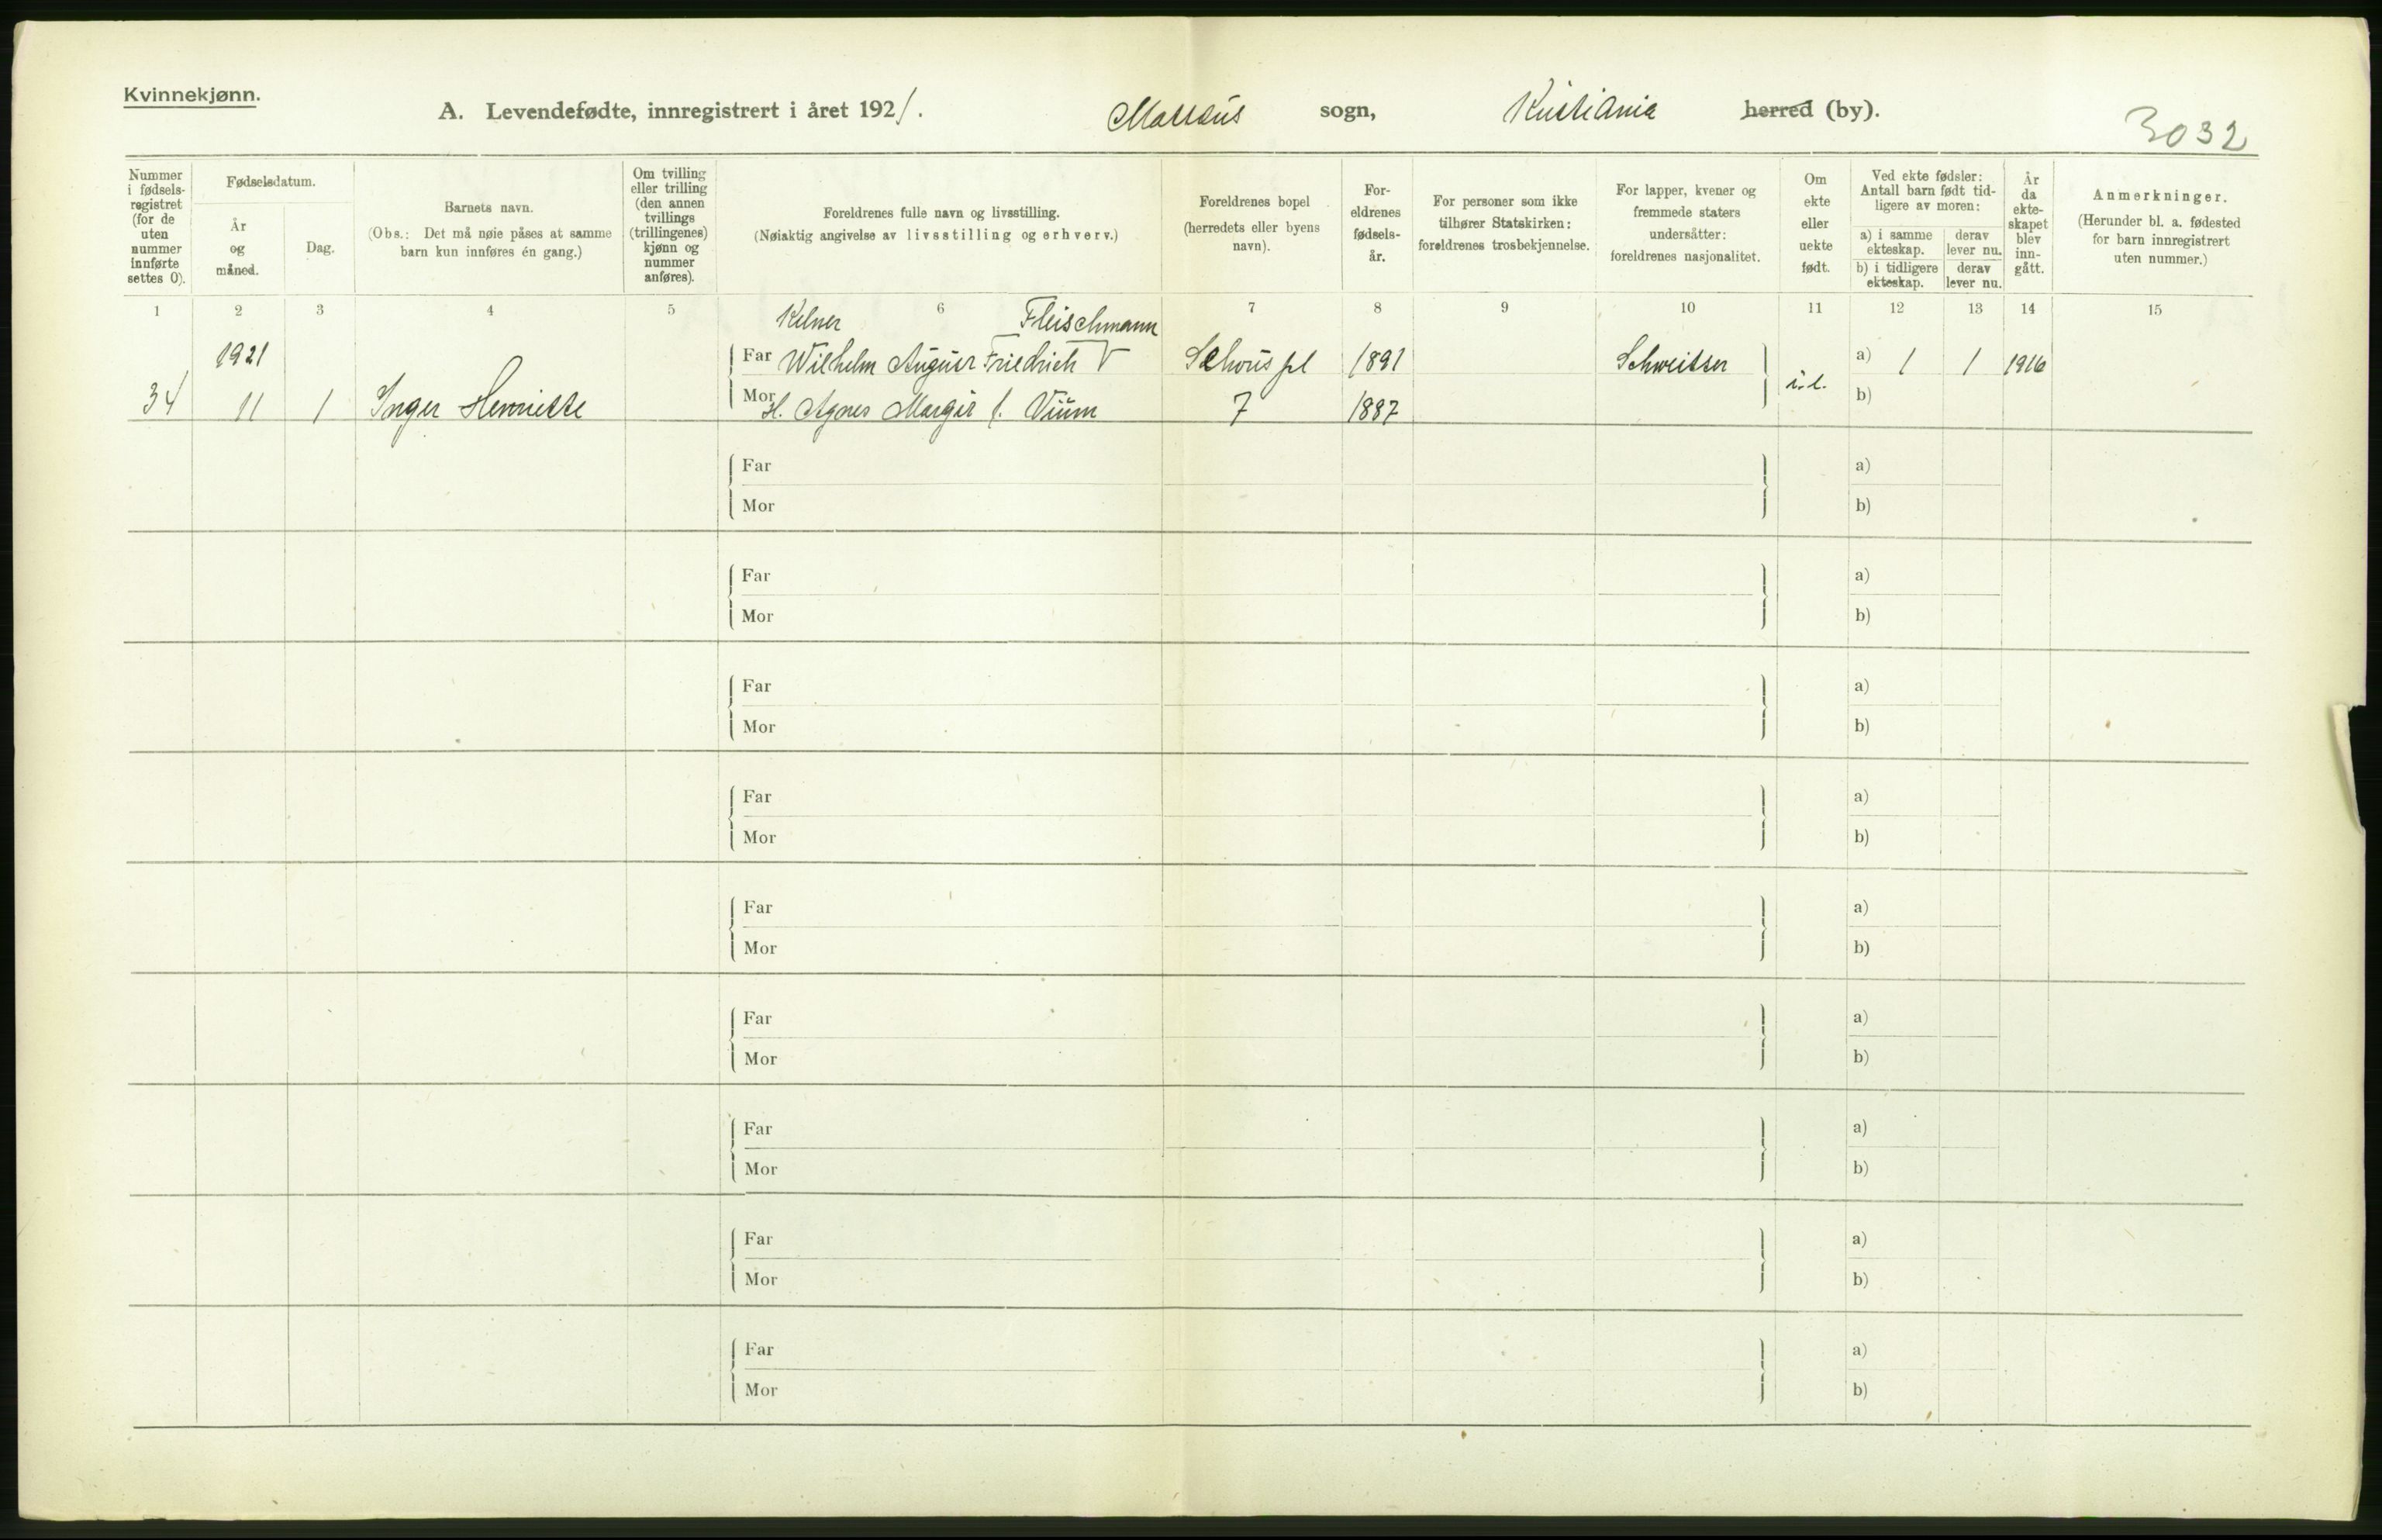 Kvinnekjønn.
A. Levendefødte, innregistrert i året 1921. Mattæus sogn, Kristiania herred (by).
3032
Nummer i fødsels-registret (for de uten nummer innførte settes 0).
Fødselsdatum.
År og måned.
Dag.
Barnets navn.
(Obs.: Det må nøie påses at samme barn kun innføres én gang.)
Om tvilling eller trilling (den annen tvillings (trillingenes) kjønn og nummer anføres).
Foreldrenes fulle navn og livsstilling.
(Nøiaktig angivelse av livsstilling og erhverv.)
Foreldrenes bopel (herredets eller byens navn).
For-eldrenes fødsels-år.
For personer som ikke tilhører Statskirken: foreldrenes trosbekjennelse.
For lapper, kvener og fremmede staters undersåtter: foreldrenes nasjonalitet.
Om ekte eller uekte født.
Ved ekte fødsler: Antall barn født tid-ligere av moren:
a) i samme ekteskap.
derav lever nu.
b) i tidligere ekteskap.
derav lever nu.
År da ekte-skapet blev inn-gått.
Anmerkninger.
(Herunder bl. a. fødested for barn innregistrert uten nummer.)
1 2 3 4 5 6 7 8 9 10 11 12 13 14 15
Kelner Fleischmann
1921 Far Wilhelm August Friedrich V Schous pl 1891 Schweitser a) 1 1 1916
34 11 1 Inger Henriette Mor H. Agnes Margit f. Vium 7 1887 i.e. b)
Far a)
Mor b)
Far a)
Mor b)
Far a)
Mor b)
Far a)
Mor b)
Far a)
Mor b)
Far a)
Mor b)
Far a)
Mor b)
Far a)
Mor b)
Far a)
Mor b)